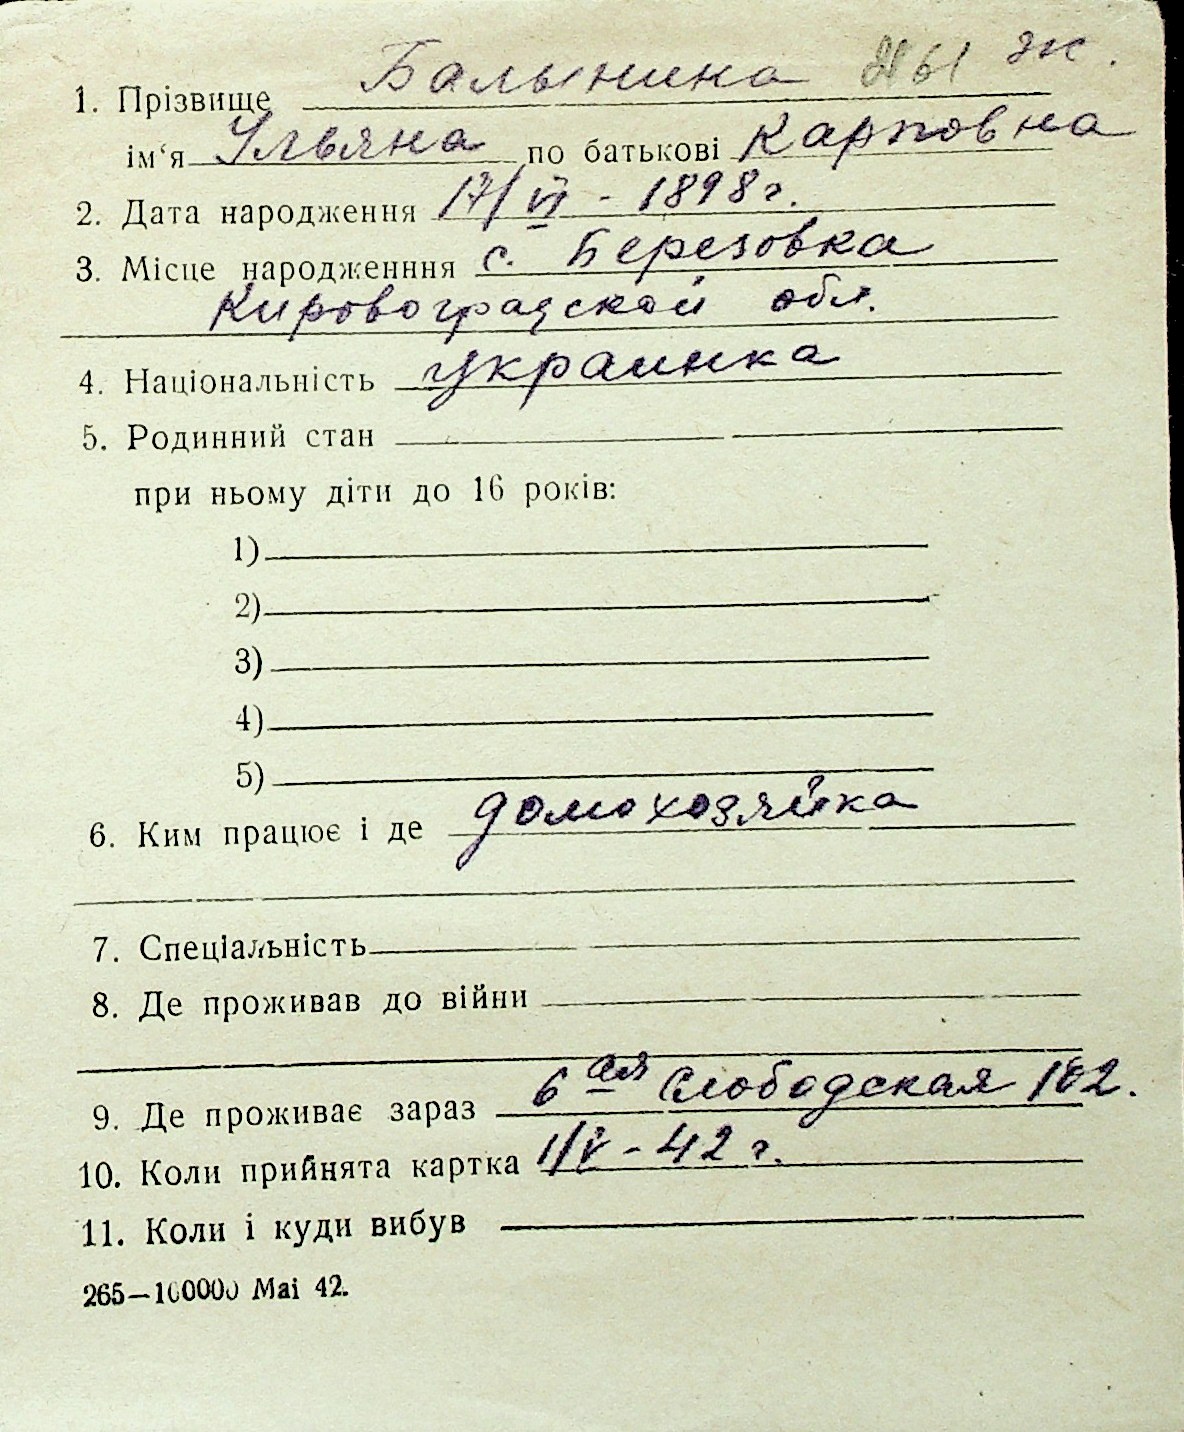 1. Прізвище Балынина № 61 ж.
ім‘я Ульяна по батькові Карповна
2. Дата народження 17/VI - 1898 г.
3. Місце народженння с. Березовка
Кировоградской обл.
4. Національність украинка
5. Родинний стан
при ньому діти до 16 років:
1)
2)
3)
4)
5)
6. Ким працює і де домохозяйка
7. Спеціальність
8. Де проживав до війни
9. Де проживає зараз 6 ая Слободская 102.
10. Коли прийнята картка 1/V - 42 г.
11. Коли і куди вибув
265—100000 Mai 42.